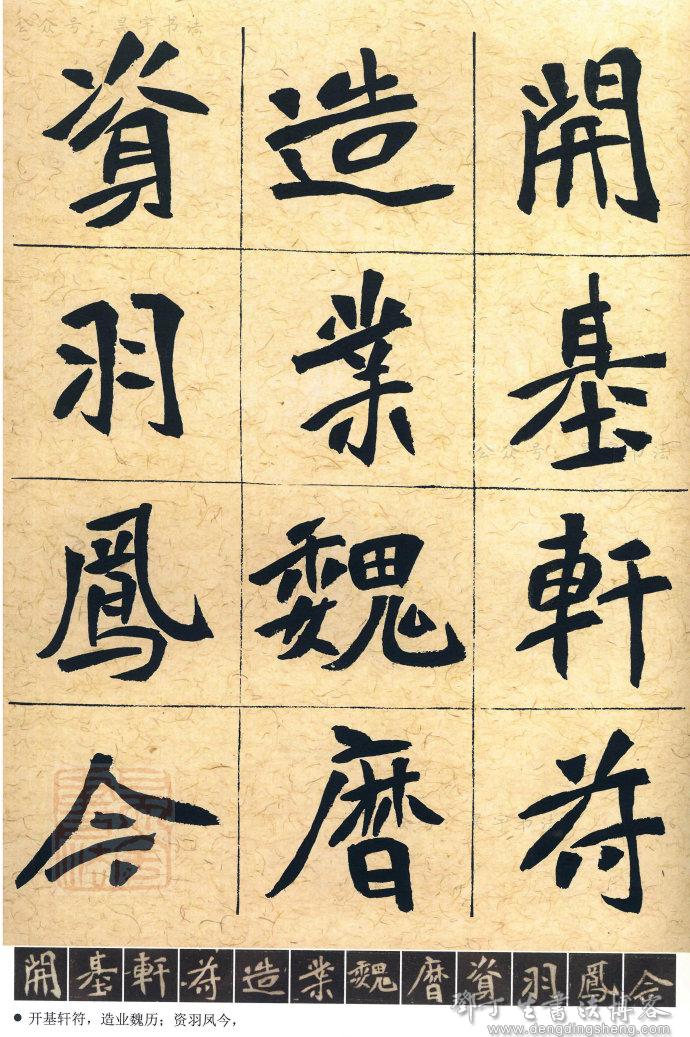 開基軒符
造業魏曆
資羽鳳今
開基軒符造業魏曆資羽鳳今
● 开基轩符，造业魏历；资羽凤今，
鄧丁生書法博客
www.dengdingsheng.com